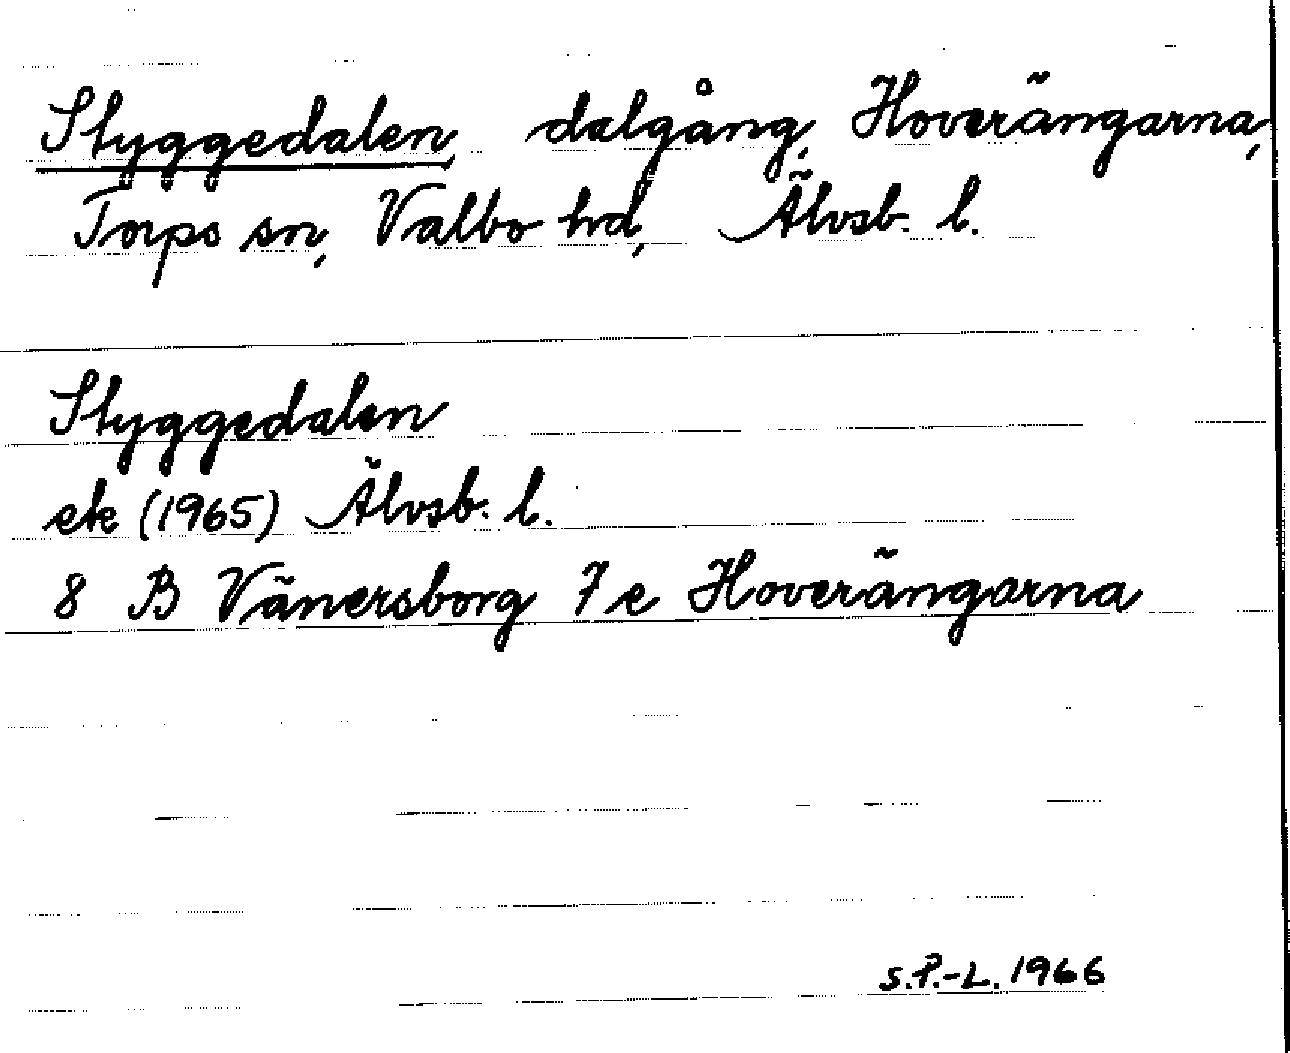 Styggedalen, dalgång, Hoverängarna,
Torps sn, Valbo hd, Älvsb. l.
Styggedalen
ek (1965) Älvsb. l.
8 B Vänersborg 7e Hoverängarna
S.P.-L. 1966